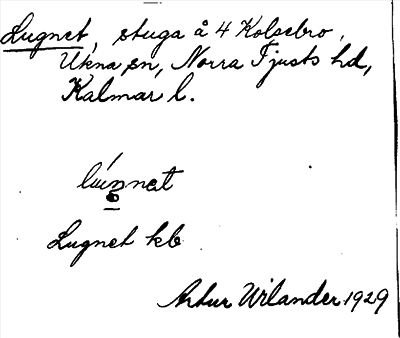 Lugnet, stuga å 4 Kolsebro,
Ukna sn, Norra Tjusts hd,
Kalmar l.
Lugnet kb
Artur Wilander 1929